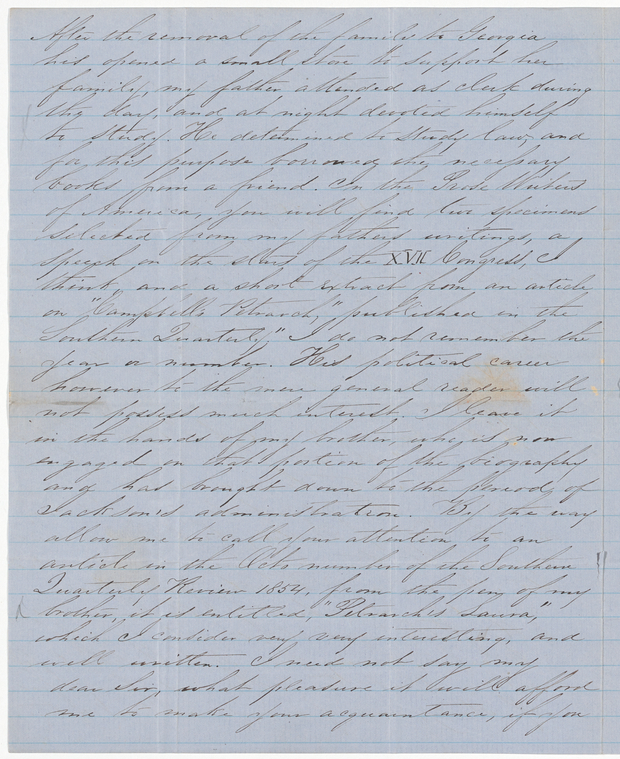 After the removal of the family to Georgia
his opened a small store to support her
family, my father attended as clerk during
the day, and at night devoted himself
to study. He determined to study law, and
for this purpose borrowed the necessary
books from a friend. In the Prose Writers
of America, you will find two specimens
selected from my fathers writings, a
speech on the of the XVII Congress, I
think, and a short extract from an article
on "Campbell's Petrarch," published in the
Southern Quarterly," I do not remember the
year or number. His political career
however to the mere general reader will
not possess much interest, I leave it
in the hands of my brother, who is now
engaged on that portion of the biography
and has brought down to the period of
Jackson's administration. By the way
allow me to call your attention to an
article in the Octo number of the Southern
Quarterly Review 1854, from the pen of my
brother, it is entitled, "Petrarch's Laura,"
which I consider very very interesting, and
well written. I need not say my
dear Sir, what pleasure it will afford
me to make your acquaintance, if you